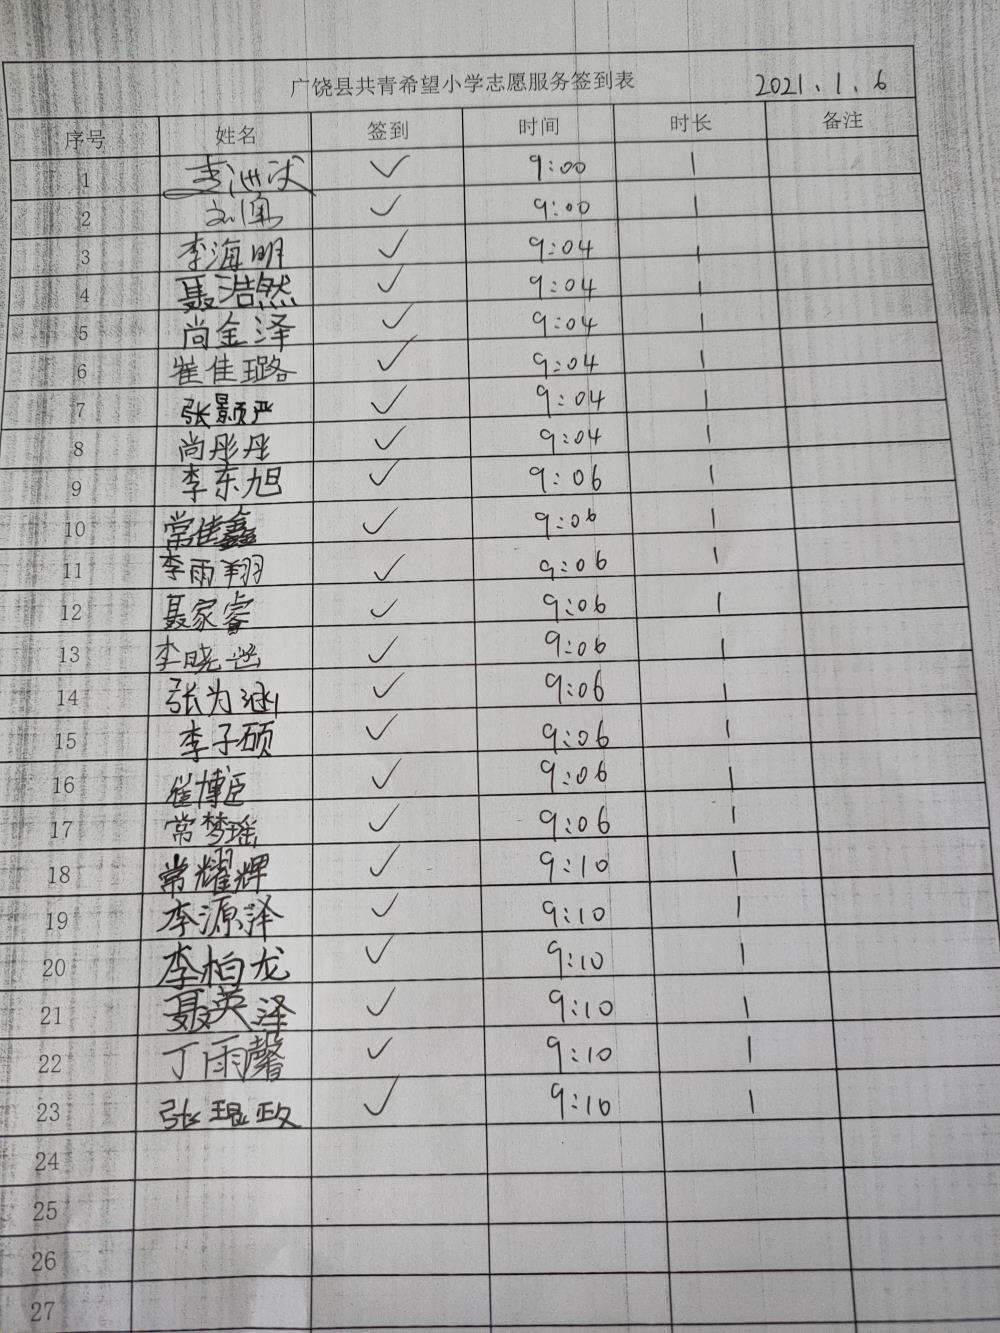 广饶县共青希望小学志愿服务签到表 2021.1.6
序号 姓名 签到 时间 时长 备注
1 ✓ 9:00 1
2 ✓ 9:00 1
3 李海明 ✓ 9:04 1
4 聂浩然 ✓ 9:04 1
5 尚金泽 ✓ 9:04 1
6 崔佳璐 ✓ 9:04 1
7 张颢严 ✓ 9:04 1
8 尚彤彤 ✓ 9:04 1
9 李东旭 ✓ 9:06 1
10 常佳鑫 ✓ 9:06 1
11 李雨翔 ✓ 9:06 1
12 聂家睿 ✓ 9:06 1
13 李晓 ✓ 9:06 1
14 张为涵 ✓ 9:06 1
15 李子硕 ✓ 9:06 1
16 崔博臣 ✓ 9:06 1
17 常梦瑶 ✓ 9:06 1
18 常耀辉 ✓ 9:10 1
19 李源泽 ✓ 9:10 1
20 李柏龙 ✓ 9:10 1
21 聂英泽 ✓ 9:10 1
22 丁雨馨 ✓ 9:10 1
23 张琨政 ✓ 9:10 1
24
25
26
27